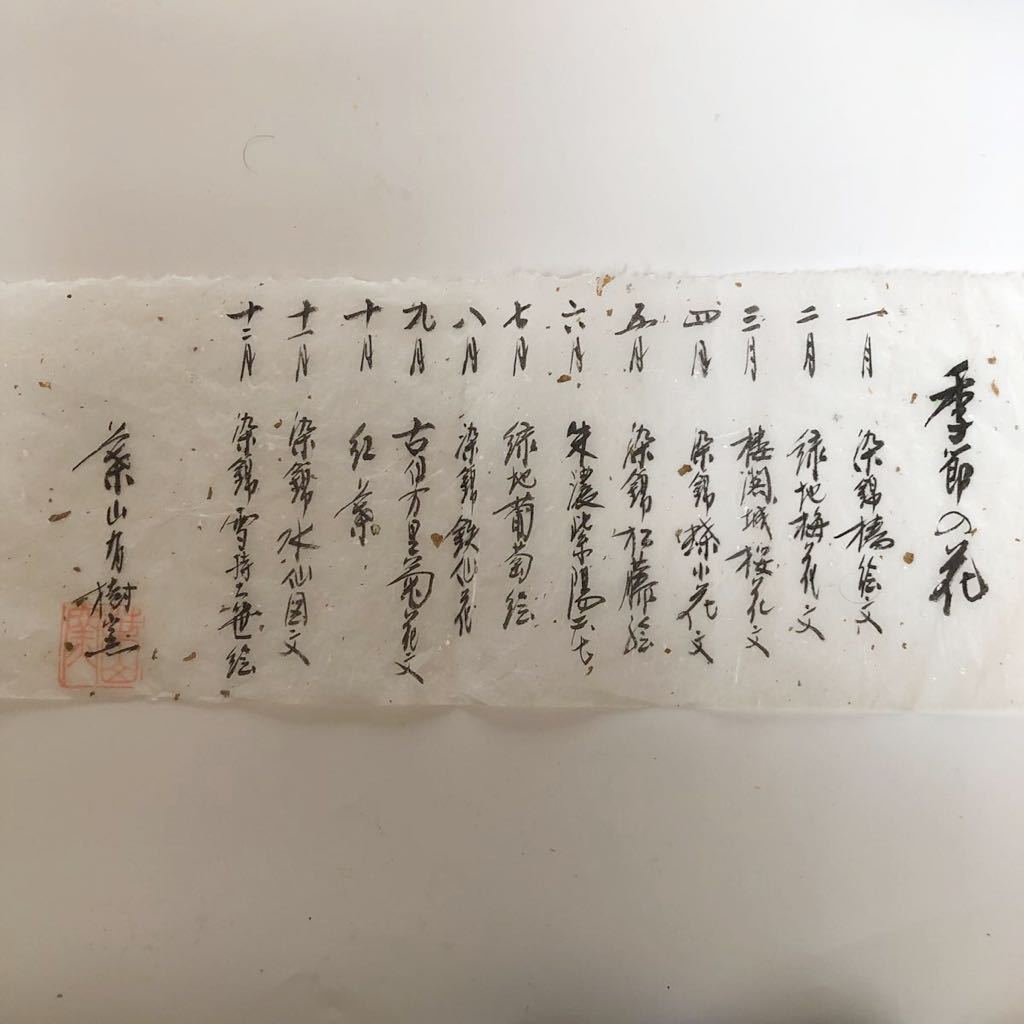 季節の花
一月 染錦椿絵文
二月 緑地梅花文
三月 楼閣城桜花文
四月 染錦蝶小花文
五月 染錦松藤絵
六月 朱濃紫陽
七月 緑地葡萄絵
八月 染錦鉄仙花
九月 古伊万里菊花文
十月 紅葉
十一月 染錦水仙図文
十二月 染錦雪持笹絵
葉山有樹窯